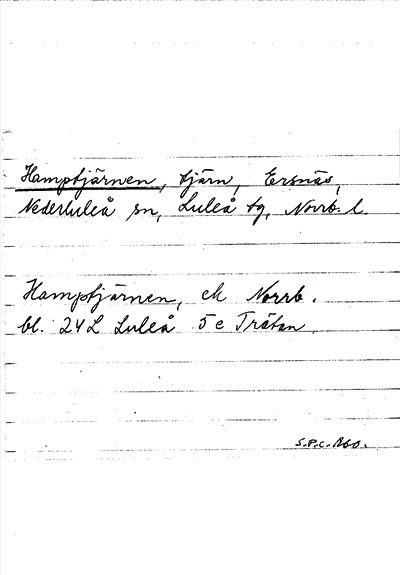 Hamptjärnen, tjärn, Ersnäs,
Nederluleå sn, Luleå tg, Norrb. l.
Hamptjärnen, ek Norrb.
bl. 24 L Luleå 5 c Trätan
S.P.C. 1960.